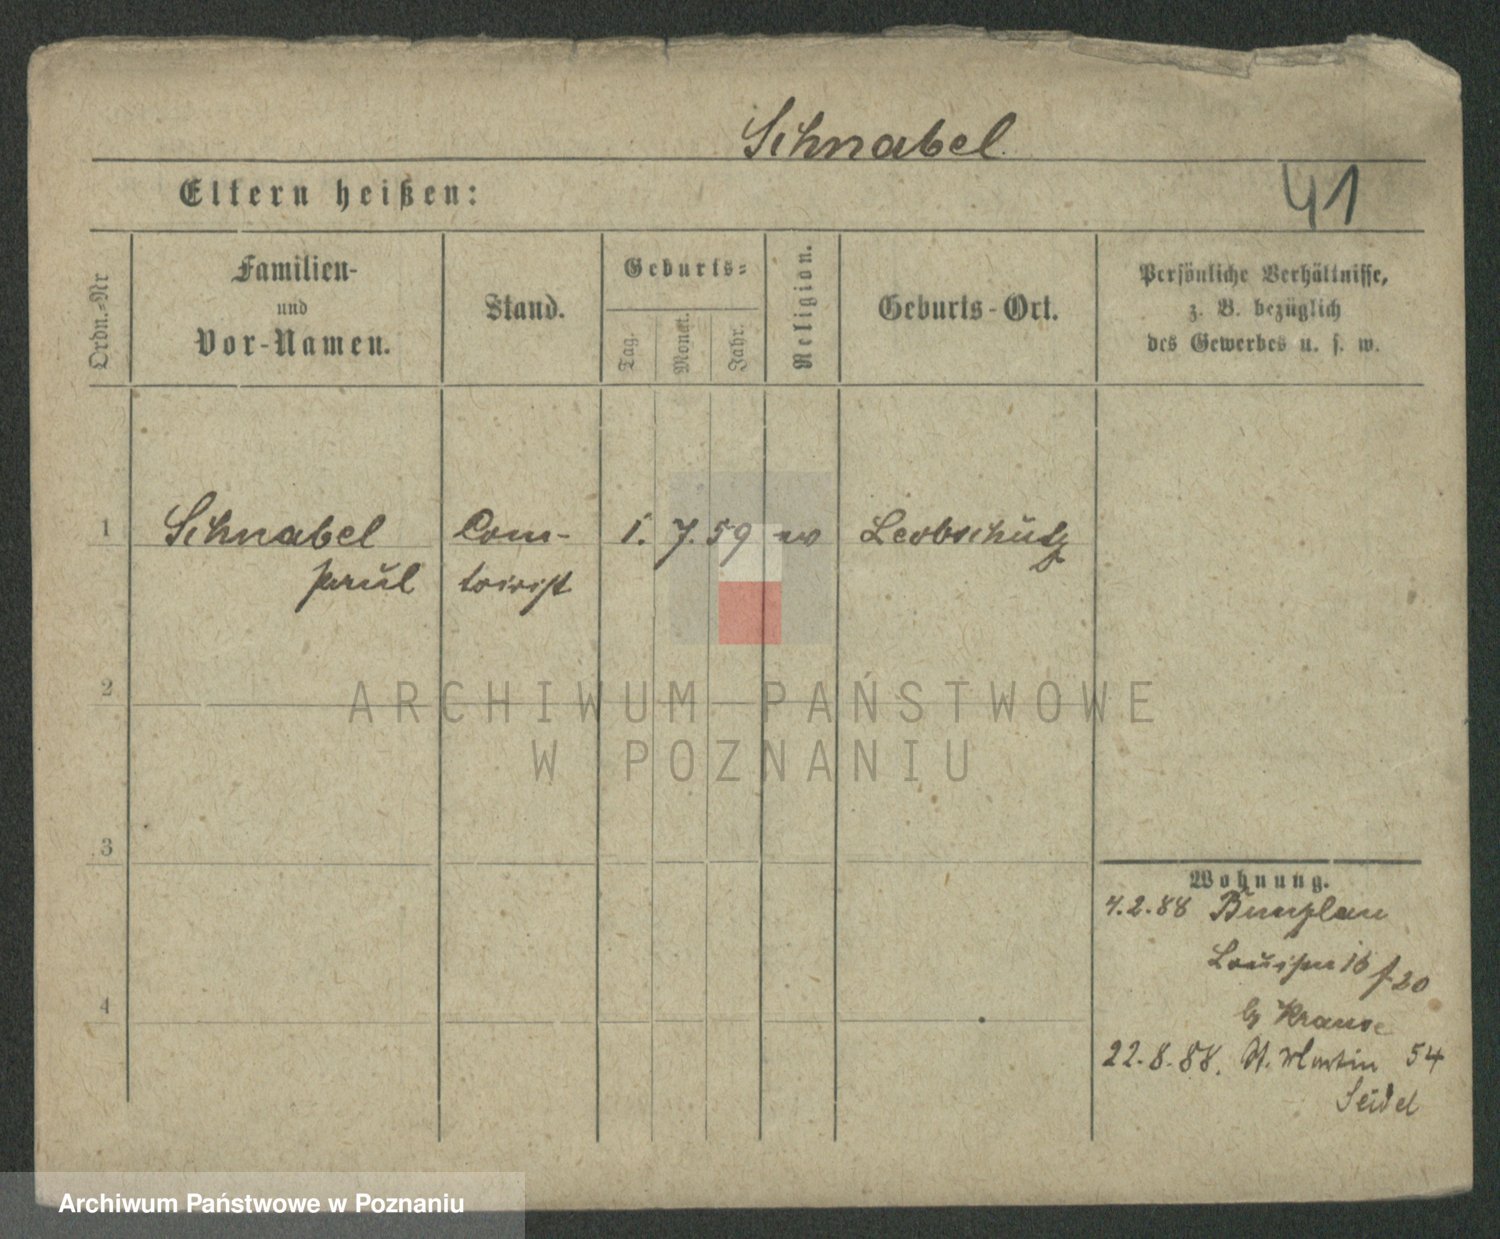 Schnabel
41
Eltern heißen:
Ordn.-Nr
Familien-
und
Vor-Namen.
Stand.
Geburts-
Tag.
Monat.
Jahr.
Religion.
Geburts-Ort.
Persönliche Verhältnisse,
z. B. bezüglich
des Gewerbes u. s. w.
1 Schnabel Com- 1. 7. 59 Leobschütz
Paul toirist
2
ARCHIWUM PAŃSTWOWE
W POZNANIU
3
Wohnung.
4.2.88 Bunzlau
Louisen 16
20
Krause
4
22.8.88. St. Martin 54
Seidel
Archiwum Państwowe w Poznaniu